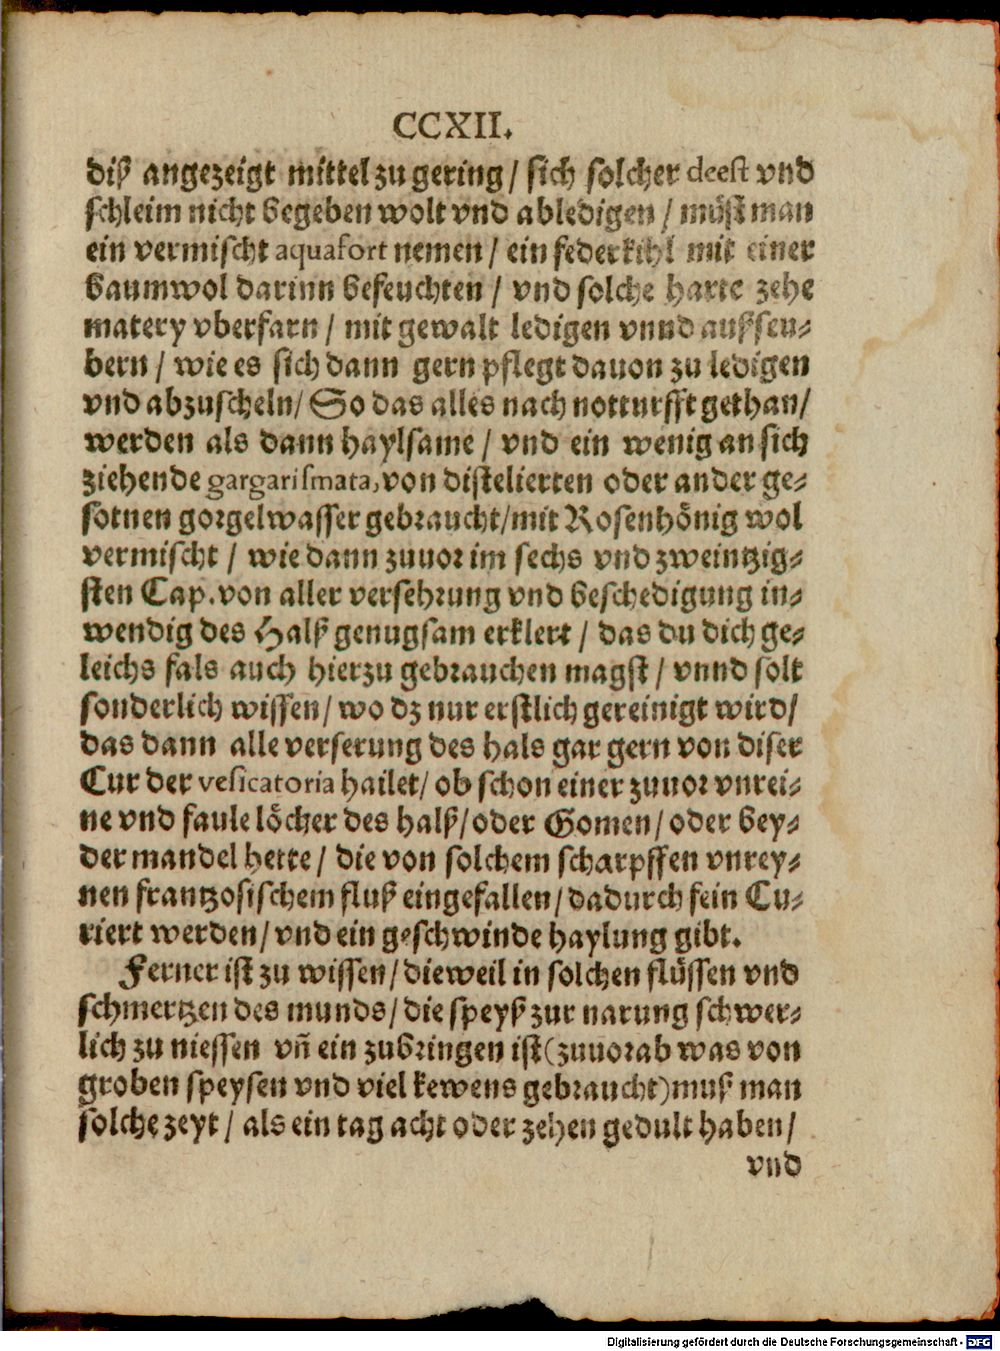 CCXII.
diß angezeigt mittel zu gering / sich solcher deest vnd
schleim nicht begeben wolt vnd abledigen / müst man
ein vermischt aquafort nemen / ein federkihl mit einer
baumwol darinn befeuchten / vnd solche harte zehe
matery vberfarn / mit gewalt ledigen vnnd aussseu-
bern / wie es sich dann gern pflegt dauon zu ledigen
vnd abzuscheln / So das alles nach notturfft gethan /
werden als dann haylsame / vnd ein wenig an sich
ziehende gargarismata, von distelierten oder ander ge-
sotnen gorgelwasser gebraucht / mit Rosenhönig wol
vermischt / wie dann zuuor im sechs vnd zweintzig-
sten Cap. von aller versehrung vnd beschedigung in-
wendig des Halß genugsam erklert / das du dich ge-
leichs fals auch hierzu gebrauchen magst / vnnd solt
sonderlich wissen / wo dz nur erstlich gereinigt wird /
das dann alle verserung des hals gar gern von diser
Cur der vesicatoria hailet / ob schon einer zuuor vnrei-
ne vnd faule löcher des halß / oder Gomen / oder bey-
der mandel hette / die von solchem scharpffen vnrey-
nen frantzosischem fluß eingefallen / dadurch fein Cu-
riert werden / vnd ein geschwinde haylung gibt.
Ferner ist zu wissen / dieweil in solchen flüssen vnd
schmertzen des munds / die speyß zur narung schwer-
lich zu niessen vñ ein zubringen ist (zuuorab was von
groben speysen vnd viel kewens gebraucht) muß man
solche zeyt / als ein tag acht oder zehen gedult haben /
vnd
Digitalisierung gefördert durch die Deutsche Forschungsgemeinschaft - DFG